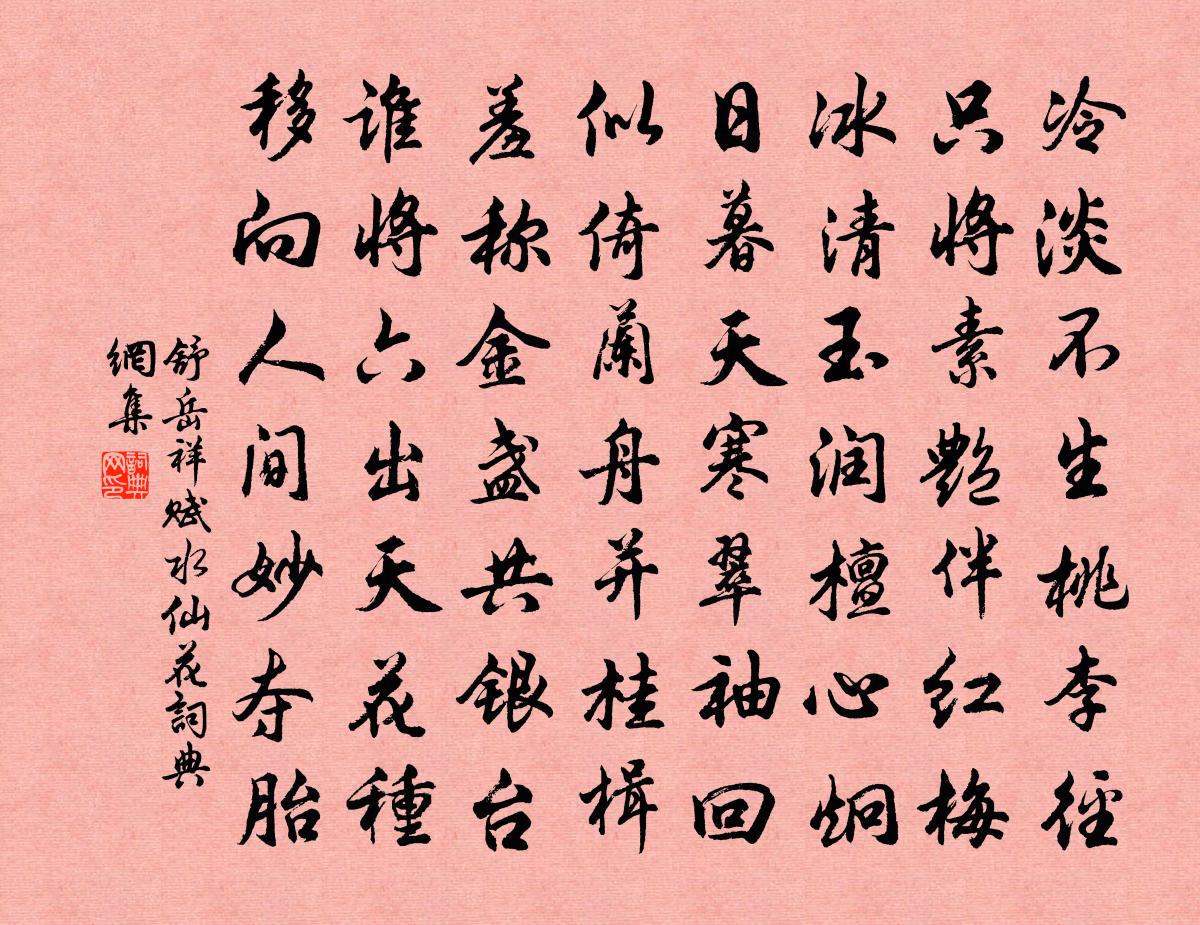 冷淡不生桃李径
只将素艳伴红梅
冰清玉润檀心炯
日暮天寒翠袖回
似倚蘭舟并桂楫
羞称金盏共银台
谁将六出天花種
移向人间妙夺胎
舒岳祥赋水仙花詞典
網集
詞典
网印